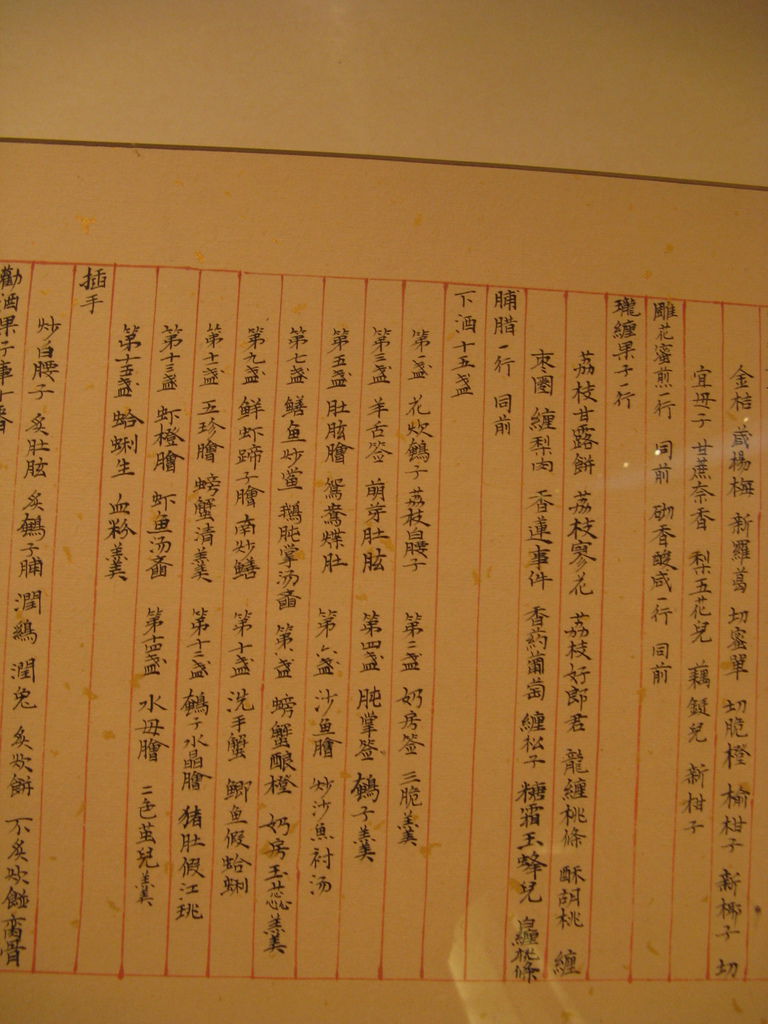 金桔 咸楊梅 新羅葛 切蜜蕈 切脆橙 榆柑子 新椰子 切
宜母子 甘蔗奈香 梨五花兒 藕鋌兒 新柑子
雕花蜜煎一行 同前 砌香酸咸一行 同前
瓏纏果子一行
荔枝甘露餅 荔枝寥花 荔枝好郎君 龍纏桃條 酥胡桃 纏
枣圈 纏梨肉 香蓮事件 香葯葡萄 纏松子 糖霜玉蜂兒 白纏桃條
脯腊一行 同前
下酒十五盏
第一盏 花炊鵪子 荔枝白腰子 第二盏 奶房签 三脆羹
第三盏 羊舌签 萌芽肚胘 第四盏 肫掌签 鵪子羹
第五盏 肚胘膾 鴛鴦煠肚 第六盏 沙鱼膾 炒沙魚衬汤
第七盏 鳝鱼炒鲎 鵝肫掌汤齑 第八盏 螃蟹酿橙 奶房玉蕊羹
第九盏 鲜虾蹄子膾 南炒鳝 第十盏 洗手蟹 鯽鱼假蛤蜊
第十一盏 五珍膾 螃蟹清羹 第十二盏 鵪子水晶膾 猪肚假江珧
第十三盏 虾橙膾 虾鱼汤齑 第十四盏 水母膾 二色茧兒羹
第十五盏 蛤蜊生 血粉羹
插手
炒白腰子 炙肚胘 炙鵪子脯 潤鷄 潤兔 炙炊餅 不炙炊餅 脔骨
勸酒果子事十番